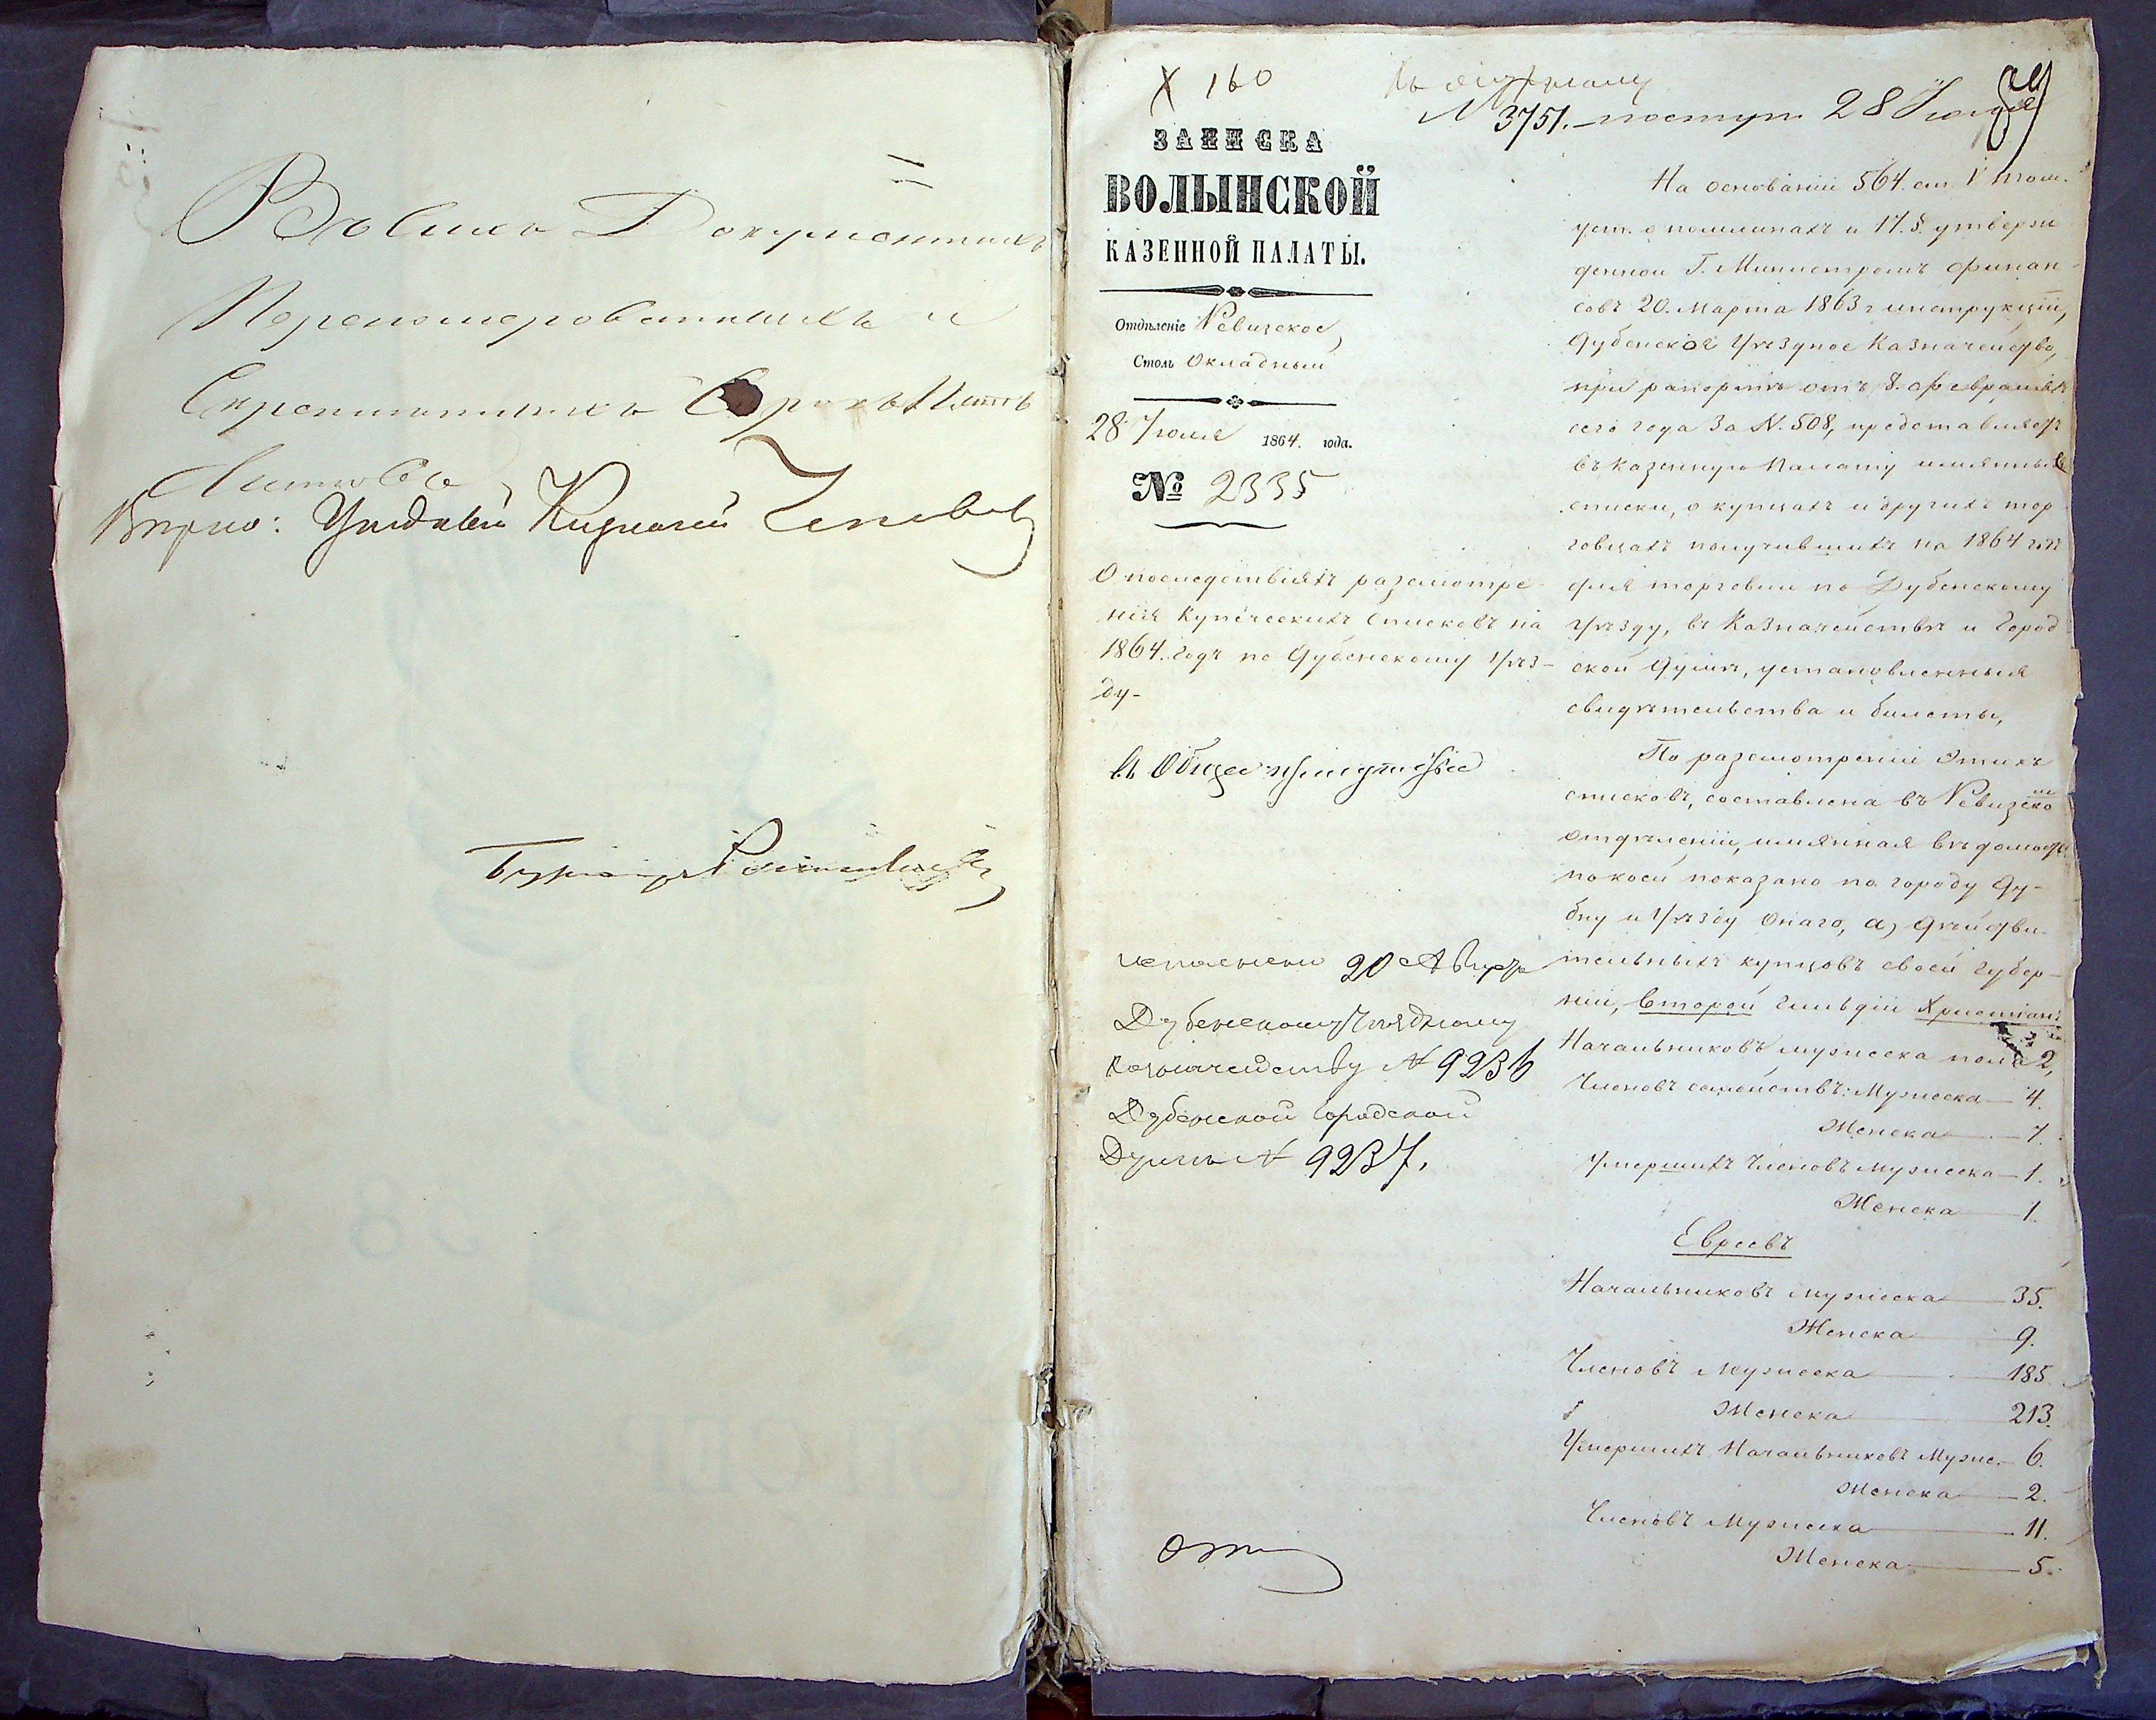 Въ сихъ Документахъ
Перенумерованныхъ и
Скрепленныхъ Сорокъ Пять
Листовъ
Вѣрно: Уѣздный Казначей
X 160
Къ журналу
№ 3751. поступ. 28 Іюля
ЗАПИСКА
ВОЛЫНСКОЙ
КАЗЕННОЙ ПАЛАТЫ.
Отдѣленіе Ревизское,
Столъ Окладный
28 Іюля 1864. года.
№ 2335
О последствіяхъ разсмотре-
нія Купеческихъ Списковъ на
1864. годъ по Дубенскому Уѣз-
ду-
въ Общее присутствіе
исполнено 20 Августа
Дубенскому Уѣздному
Казначейству № 9236
Дубенской Городской
Думѣ № 9237.
На основаніи 564. ст. V. том.
уст. о пошлинахъ и 17. §. утверж
денной Г. Министромъ финан-
совъ 20. Марта 1863 г инструкціи,
Дубенское Уѣздное Казначейство,
при рапортѣ отъ 8. февраля
сего года За № 508, представляетъ
въ Казенную Палату имянные
списки, о купцахъ и другихъ тор
говцахъ получившихъ на 1864 годъ
для торговли по Дубенскому
Уѣзду, въ Казначействѣ и Город
ской Думѣ, установленныя
свидѣтельства и билеты,
По разсмотреніи этихъ
списковъ, составлена въ Ревизско
мъ
отдѣленіи, имянная вѣдомость
по коей показано по городу Ду-
бну и Уѣзду онаго, а) дѣйстви-
тельныхъ купцовъ своей губер-
ніи, второй гильдіи Христіанъ
Начальниковъ мужеска пола 2,
Членовъ семействъ: Мужеска — 4.
Женска — 7.
Умершихъ Членовъ мужеска — 1.
Женска — 1.
Евреевъ
Начальниковъ мужеска — 35.
Женска — 9.
Членовъ мужеска — 185.
Женска — 213.
Умершихъ Начальниковъ Муже. — 6.
Женска — 2.
Членовъ Мужеска — 11.
Женска — 5.